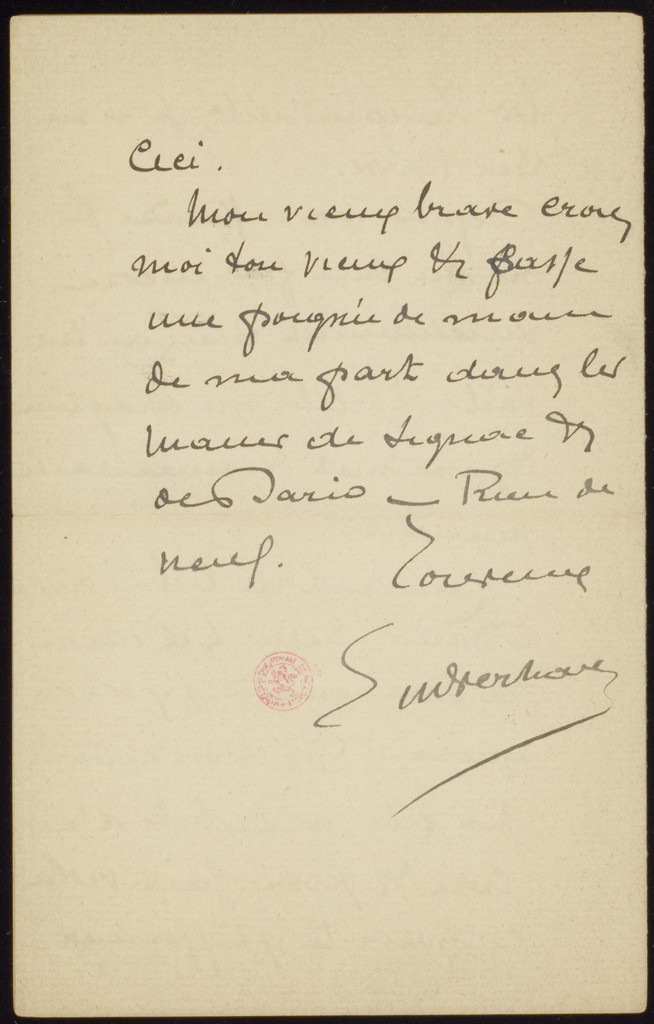 Ceci.
Mon vieux brave crois
moi ton vieux & passe
une poignée de main
de ma part dans les
mains de Signac &
de Dario — Rien de
neuf.
Em Verhaeren